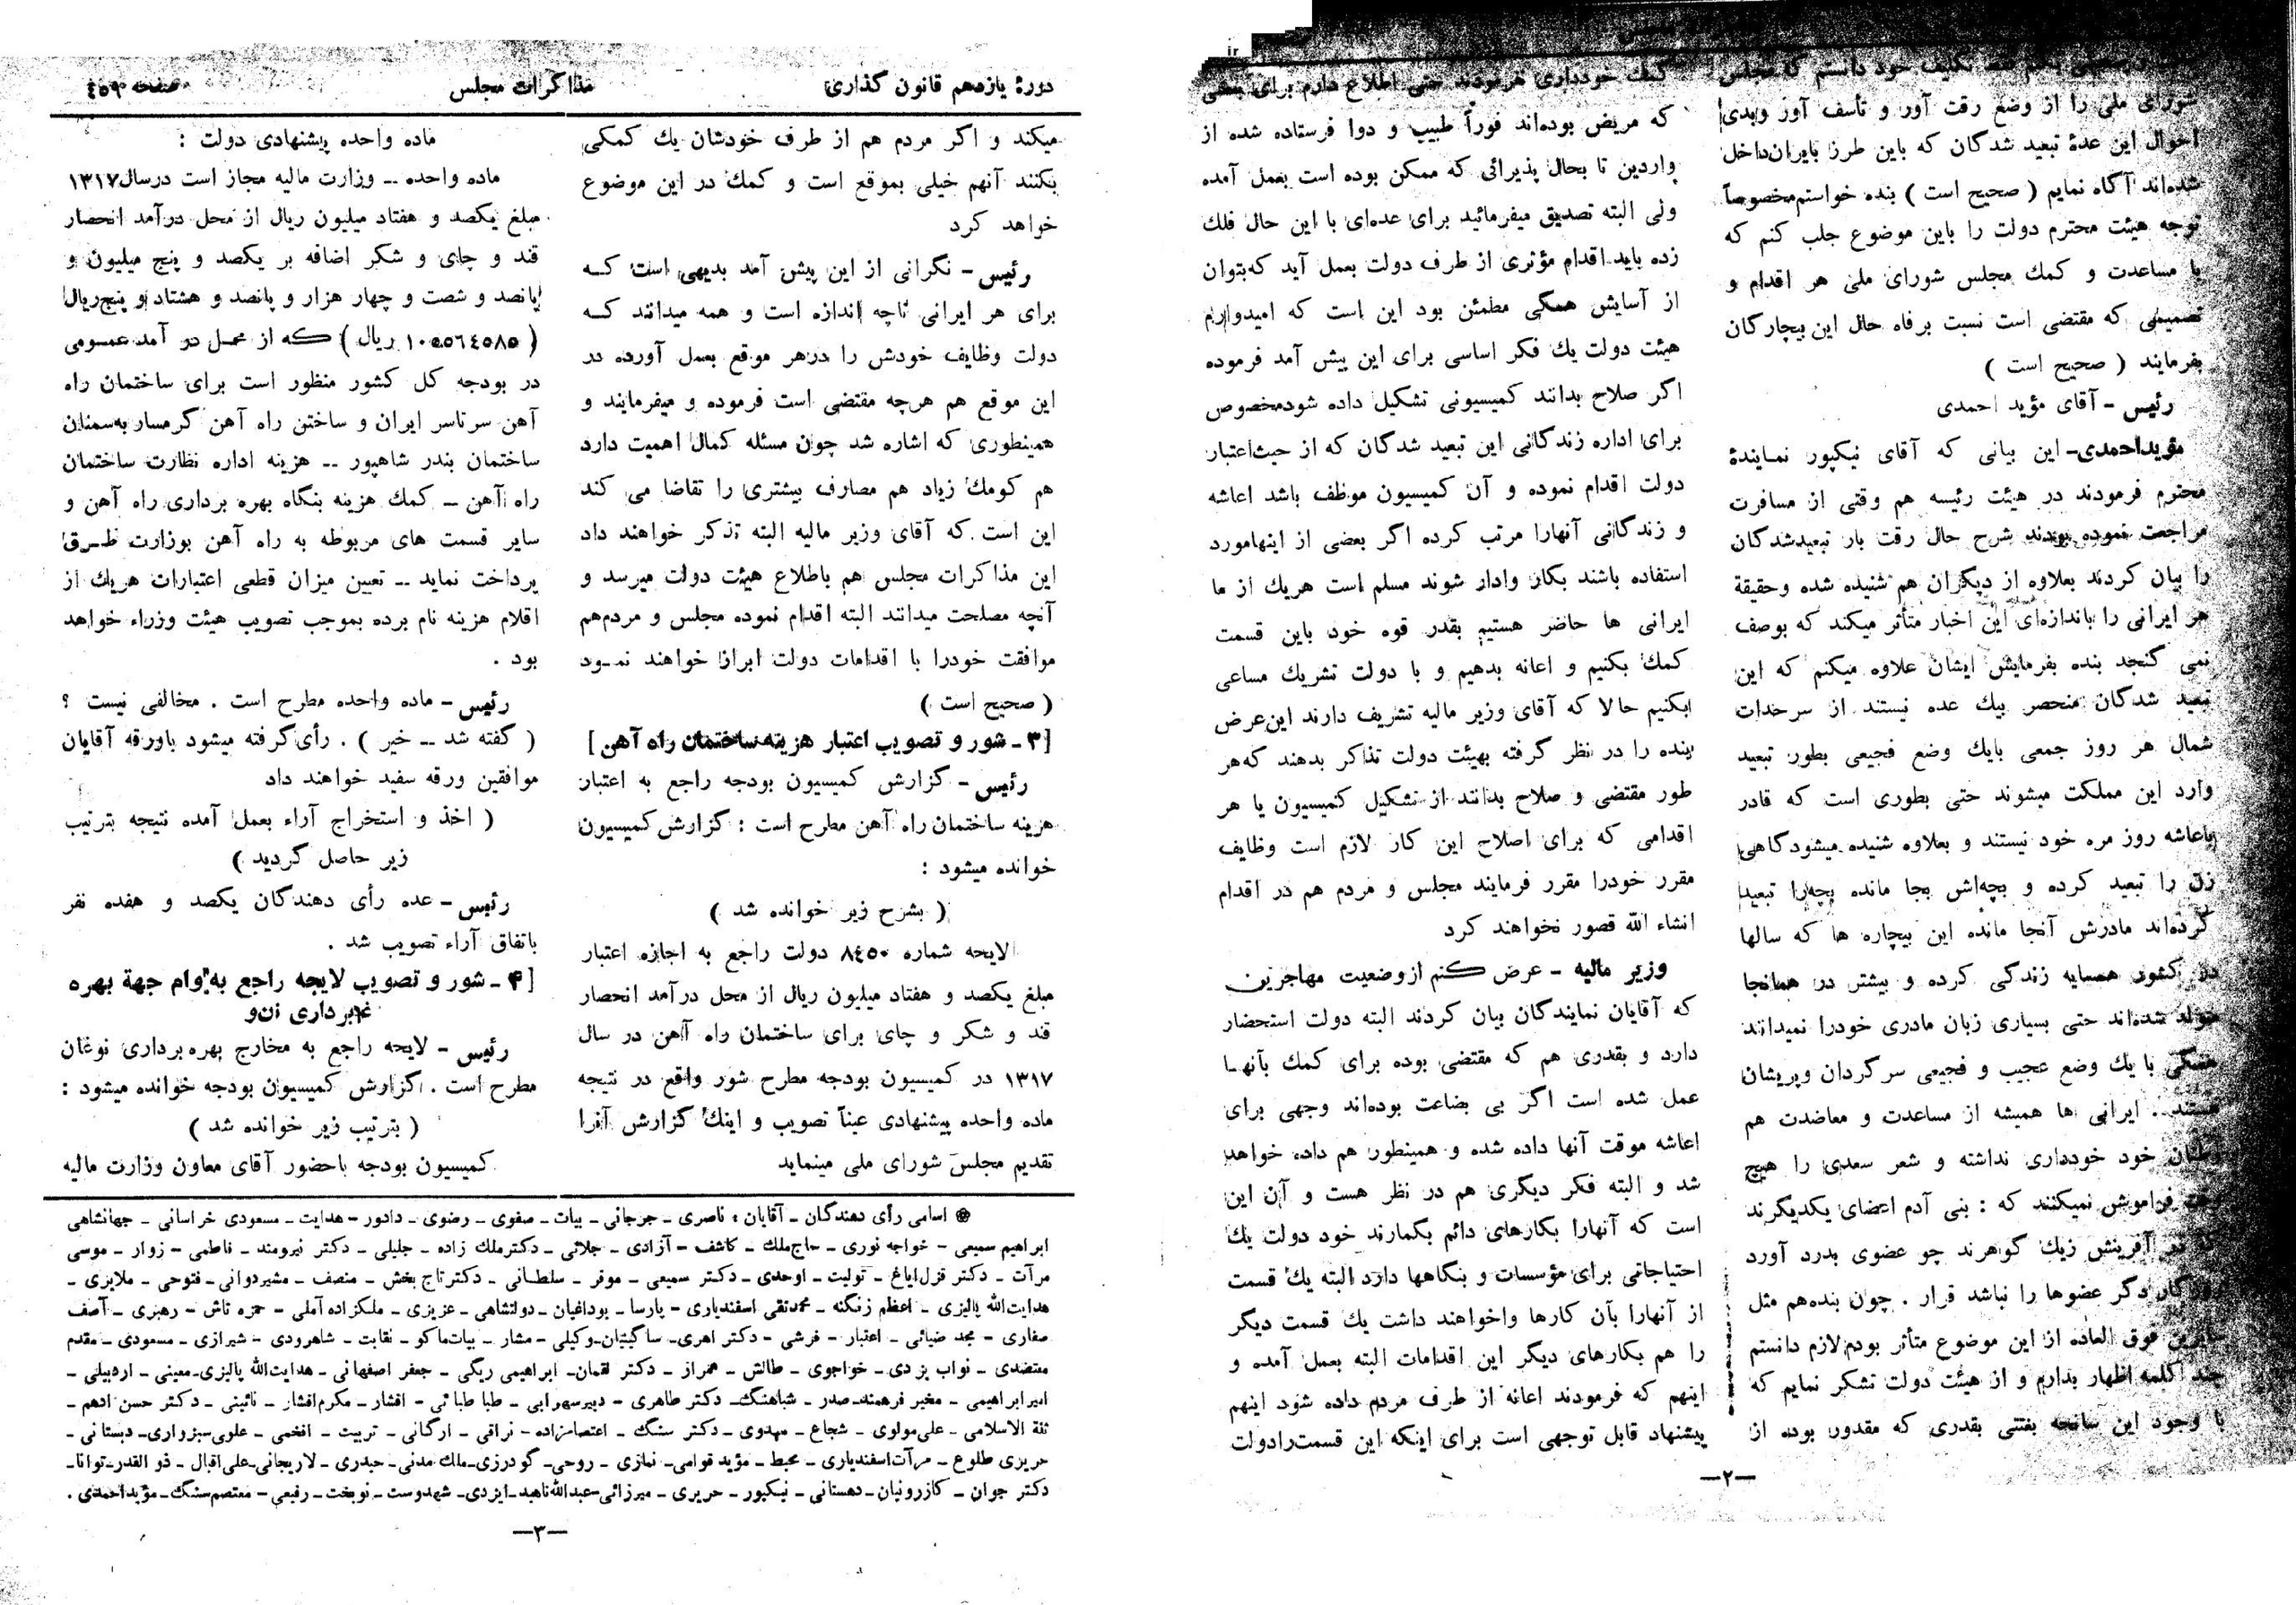 شورای ملی را از وضع رقت آور و تأسف آور و بدی
احوال این عدهٔ تبعید شدگان که باین طرز بایران داخل
شده‌اند آگاه نمایم ( صحیح است ) بنده خواستم مخصوصاً
توجه هیئت محترم دولت را باین موضوع جلب کنم که
با مساعدت و کمك مجلس شورای ملی هر اقدام و
تصمیمی که مقتضی است نسبت برفاه حال این بیچارگان
بفرمایند ( صحیح است )
رئیس – آقای مؤید احمدی
مؤید احمدی– این بیانی که آقای نیکپور نمایندهٔ
محترم فرمودند در هیئت رئیسه هم وقتی از مسافرت
مراجعت نموده بودند شرح حال رقت بار تبعیدشدگان
را بیان کردند بعلاوه از دیگران هم شنیده شده وحقیقة
هر ایرانی را باندازه‌ای این اخبار متأثر میکند که بوصف
نمی گنجد بنده بفرمایش ایشان علاوه میکنم که این
تبعید شدگان منحصر بیك عده نیستند از سرحدات
شمال هر روز جمعی بایك وضع فجیعی بطور تبعید
وارد این مملکت میشوند حتی بطوری است که قادر
باعاشه روز مره خود نیستند و بعلاوه شنیده میشود گاهی
زن را تبعید کرده و بچه‌اش بجا مانده بچه‌را تبعید
کرده‌اند مادرش آنجا مانده این بیچاره ها که سالها
در کشور همسایه زندگی کرده و بیشتر در همانجا
متولد شده‌اند حتی بسیاری زبان مادری خودرا نمیدانند
همگی با یك وضع عجیب و فجیعی سرگردان وپریشان
هستند . ایرانی ها همیشه از مساعدت و معاضدت هم
وطنان خود خودداری نداشته و شعر سعدی را هیچ
وقت فراموش نمیکنند که : بنی آدم اعضای یکدیگرند
که در آفرینش زیك گوهرند چو عضوی بدرد آورد
روزگار دگر عضوها را نباشد قرار . چون بنده هم مثل
سایرین فوق العاده از این موضوع متأثر بودم لازم دانستم
چند کلمه اظهار بدارم و از هیئت دولت تشکر نمایم که
با وجود این سانحه بغتتی بقدری که مقدور بوده از
کمك خودداری نفرمودند حتی اطلاع دارم برای بعضی
که مریض بوده‌اند فوراً طبیب و دوا فرستاده شده از
واردین تا بحال پذیرائی که ممکن بوده است بعمل آمده
ولی البته تصدیق میفرمائید برای عده‌ای با این حال فلك
زده باید اقدام مؤثری از طرف دولت بعمل آید که بتوان
از آسایش همگی مطمئن بود این است که امیدوارم
هیئت دولت یك فکر اساسی برای این پیش آمد فرموده
اگر صلاح بدانند کمیسیونی تشکیل داده شود مخصوص
برای اداره زندگانی این تبعید شدگان که از حیث اعتبار
دولت اقدام نموده و آن کمیسیون موظف باشد اعاشه
و زندگانی آنهارا مرتب کرده اگر بعضی از اینهامورد
استفاده باشند بکار وادار شوند مسلم است هریك از ما
ایرانی ها حاضر هستیم بقدر قوه خود باین قسمت
کمك بکنیم و اعانه بدهیم و با دولت تشریك مساعی
بکنیم حالا که آقای وزیر مالیه تشریف دارند این عرض
بنده را در نظر گرفته بهیئت دولت تذاکر بدهند که هر
طور مقتضی و صلاح بدانند از تشکیل کمیسیون یا هر
اقدامی که برای اصلاح این کار لازم است وظایف
مقرر خودرا مقرر فرمایند مجلس و مردم هم در اقدام
انشاء الله قصور نخواهند کرد
وزیر مالیه – عرض کنم از وضعیت مهاجرین
که آقایان نمایندگان بیان کردند البته دولت استحضار
دارد و بقدری هم که مقتضی بوده برای کمك بآنها
عمل شده است اگر بی بضاعت بوده‌اند وجهی برای
اعاشه موقت آنها داده شده و همینطور هم داده خواهد
شد و البته فکر دیگری هم در نظر هست و آن این
است که آنهارا بکارهای دائم بگمارند خود دولت یك
احتیاجاتی برای مؤسسات و بنگاهها دارد البته یك قسمت
از آنهارا بآن کارها واخواهند داشت یك قسمت دیگر
را هم بکارهای دیگر این اقدامات البته بعمل آمده و
اینهم که فرمودند اعانه از طرف مردم داده شود اینهم
پیشنهاد قابل توجهی است برای اینکه این قسمت رادولت
—۲—
دورهٔ یازدهم قانون گذاری
مذاکرات مجلس
صفحه ٤٥٩
میکند و اگر مردم هم از طرف خودشان یك کمکی
بکنند آنهم خیلی بموقع است و کمك در این موضوع
خواهد کرد
رئیس – نگرانی از این پیش آمد بدیهی است که
برای هر ایرانی تاچه اندازه است و همه میدانند که
دولت وظایف خودش را درهر موقع بعمل آورده در
این موقع هم هرچه مقتضی است فرموده و میفرمایند و
همینطوری که اشاره شد چون مسئله کمال اهمیت دارد
هم کومك زیاد هم مصارف بیشتری را تقاضا می کند
این است که آقای وزیر مالیه البته تذکر خواهند داد
این مذاکرات مجلس هم باطلاع هیئت دولت میرسد و
آنچه مصلحت میدانند البته اقدام نموده مجلس و مردم هم
موافقت خودرا با اقدامات دولت ابراز خواهند نمود
( صحیح است )
[۳ – شور و تصویب اعتبار هزینه ساختمان راه آهن]
رئیس – گزارش کمیسیون بودجه راجع به اعتبار
هزینه ساختمان راه آهن مطرح است : گزارش کمیسیون
خوانده میشود :
( بشرح زیر خوانده شد )
لایحه شماره ٨٤٥٠ دولت راجع به اجازه اعتبار
مبلغ یکصد و هفتاد میلیون ریال از محل درآمد انحصار
قند و شکر و چای برای ساختمان راه آهن در سال
۱۳۱۷ در کمیسیون بودجه مطرح شور واقع در نتیجه
ماده واحده پیشنهادی عیناً تصویب و اینك گزارش آنرا
تقدیم مجلس شورای ملی مینماید
ماده واحده پیشنهادی دولت :
ماده واحده – وزارت مالیه مجاز است درسال ۱۳۱۷
مبلغ یکصد و هفتاد میلیون ریال از محل درآمد انحصار
قند و چای و شکر اضافه بر یکصد و پنج میلیون و
پانصد و شصت و چهار هزار و پانصد و هشتاد و پنج ریال
( ١٠٥٥٦٤٥٨٥ ریال ) که از محل در آمد عمومی
در بودجه کل کشور منظور است برای ساختمان راه
آهن سرتاسر ایران و ساختن راه آهن گرمسار به سمنان
ساختمان بندر شاهپور – هزینه اداره نظارت ساختمان
راه آهن – کمك هزینه بنگاه بهره برداری راه آهن و
سایر قسمت های مربوطه به راه آهن بوزارت طرق
پرداخت نماید – تعیین میزان قطعی اعتبارات هریك از
اقلام هزینه نام برده بموجب تصویب هیئت وزراء خواهد
بود .
رئیس – ماده واحده مطرح است . مخالفی نیست ؟
( گفته شد – خیر ) . رأی گرفته میشود باورقه آقایان
موافقین ورقه سفید خواهند داد
( اخذ و استخراج آراء بعمل آمده نتیجه بترتیب
زیر حاصل گردید )
رئیس – عده رأی دهندگان یکصد و هفده نفر
باتفاق آراء تصویب شد .
[۴ – شور و تصویب لایحه راجع به وام جهة بهره
برداری
رئیس – لایحه راجع به مخارج بهره برداری نوغان
مطرح است . گزارش کمیسیون بودجه خوانده میشود :
( بترتیب زیر خوانده شد )
کمیسیون بودجه باحضور آقای معاون وزارت مالیه
֍ اسامی رأی دهندگان – آقایان : ناصری – جرجانی – بیات – صفوی – رضوی – دادور – هدایت – مسعودی خراسانی – جهانشاهی
ابراهیم سمیعی – خواجه نوری – حاج ملك – کاشف – آزادی – جلائی – دکتر ملك زاده – جلیلی – دکتر نیرومند – فاطمی – زوار – موسی
مرآت – دکتر قزل ایاغ – تولیت – اوحدی – دکتر سمیعی – موقر – سلطانی – دکتر تاج بخش – منصف – مشیردوانی – فتوحی – ملایری –
هدایت الله پالیزی – اعظم زنگنه – محمدتقی اسفندیاری – پارسا – بوداغیان – دولتشاهی – عزیزی – ملکزاده آملی – حمزه تاش – رهبری – آصف
صفاری – مجد ضیائی – اعتبار – فرشی – دکتر اهری – ساگینیان – وکیلی – مشار – بیات ماکو – نقابت – شاهرودی – شیرازی – مسعودی – مقدم
معتضدی – نواب یزدی – خواجوی – طالش – همراز – دکتر لقمان – ابراهیمی ریگی – جعفر اصفهانی – هدایت الله پالیزی – معینی – اردبیلی –
امیر ابراهیمی – مخبر فرهمند – صدر – شباهنگ – دکتر طاهری – دبیر سهرابی – طبا طبائی – افشار – مکرم افشار – نائینی – دکتر حسن ادهم –
ثقة الاسلامی – علی مولوی – شجاع – مهدوی – دکتر سنگ – اعتصام زاده – نراقی – ارگانی – تربیت – افخمی – علوی سبزواری – دبستانی –
حریری طلوع – مرآت اسفندیاری – محیط – مؤید قوامی – نمازی – روحی – گودرزی – ملك مدنی – حیدری – لاریجانی – علی اقبال – ذو القدر – توانا –
دکتر جوان – کازرونیان – دهستانی – نیکپور – حریری – میرزائی – عبدالله ناهید – ایزدی – شهدوست – نوبخت – رفیعی – معتصم سنگ – مؤید احمدی .
—۳—